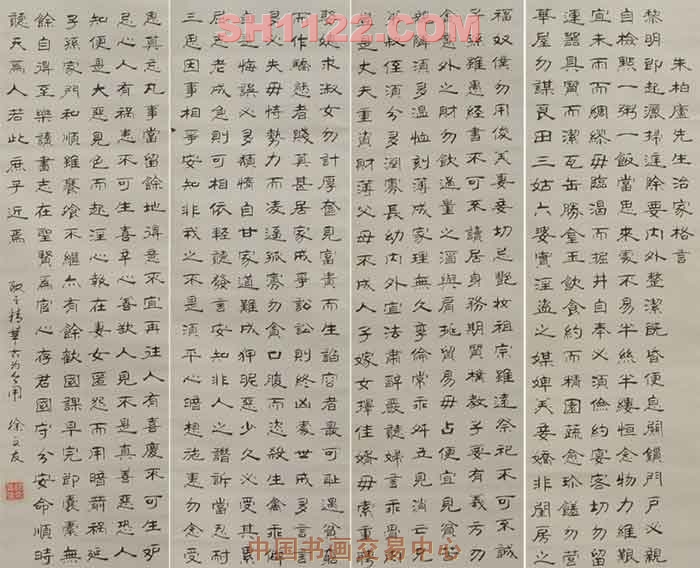 SH1122.COM
朱柏廬先生治家格言
黎明即起灑掃庭除要內外整潔既昏便息關鎖門戶必親
自檢點一粥一飯當思來處不易半絲半縷恒念物力維艱
宜未雨而綢繆毋臨渴而掘井自奉必須儉約宴客切勿留
連器具質而潔瓦缶勝金玉飲食約而精園蔬愈珍饈勿營
華屋勿謀良田三姑六婆實淫盜之媒婢美妾嬌非閨房之
福奴僕勿用俊美妻妾切忌艷妝祖宗雖遠祭祀不可不誠
子孫雖愚經書不可不讀居身務期質樸教子要有義方勿
貪意外之財勿飲過量之酒與肩挑貿易毋占便宜見貧苦
親鄰須多溫恤刻薄成家理無久享倫常乖舛立見消亡兄
弟叔侄須分多潤寡長幼內外宜法肅辭嚴聽婦言乖骨肉
豈是丈夫重資財薄父母不成人子嫁女擇佳婿毋索重聘
娶媳求淑女勿計厚奩見富貴而生諂容者最可恥遇貧窮
而作驕態者賤莫甚居家戒爭訟訟則終凶處世戒多言言
多必失毋恃勢力而凌逼孤寡勿貪口腹而恣殺生禽乖僻
自是悔誤必多頹惰自甘家道難成狎昵惡少久必受其累
屈志老成急則可相依輕聽發言安知非人之譖訴當忍耐
三思因事相爭安知非我之不是須平心暗想施惠勿念受
恩莫忘凡事當留餘地得意不宜再往人有喜慶不可生妒
忌心人有禍患不可生喜幸心善欲人見不是真善惡恐人
知便是大惡見色而起淫心報在妻女匿怨而用暗箭禍延
子孫家門和順雖饔飧不繼亦有餘歡國課早完即囊橐無
餘自得至樂讀書志在聖賢為官心存君國守分安命順時
聽天為人若此庶乎近焉
中国书画交易中心